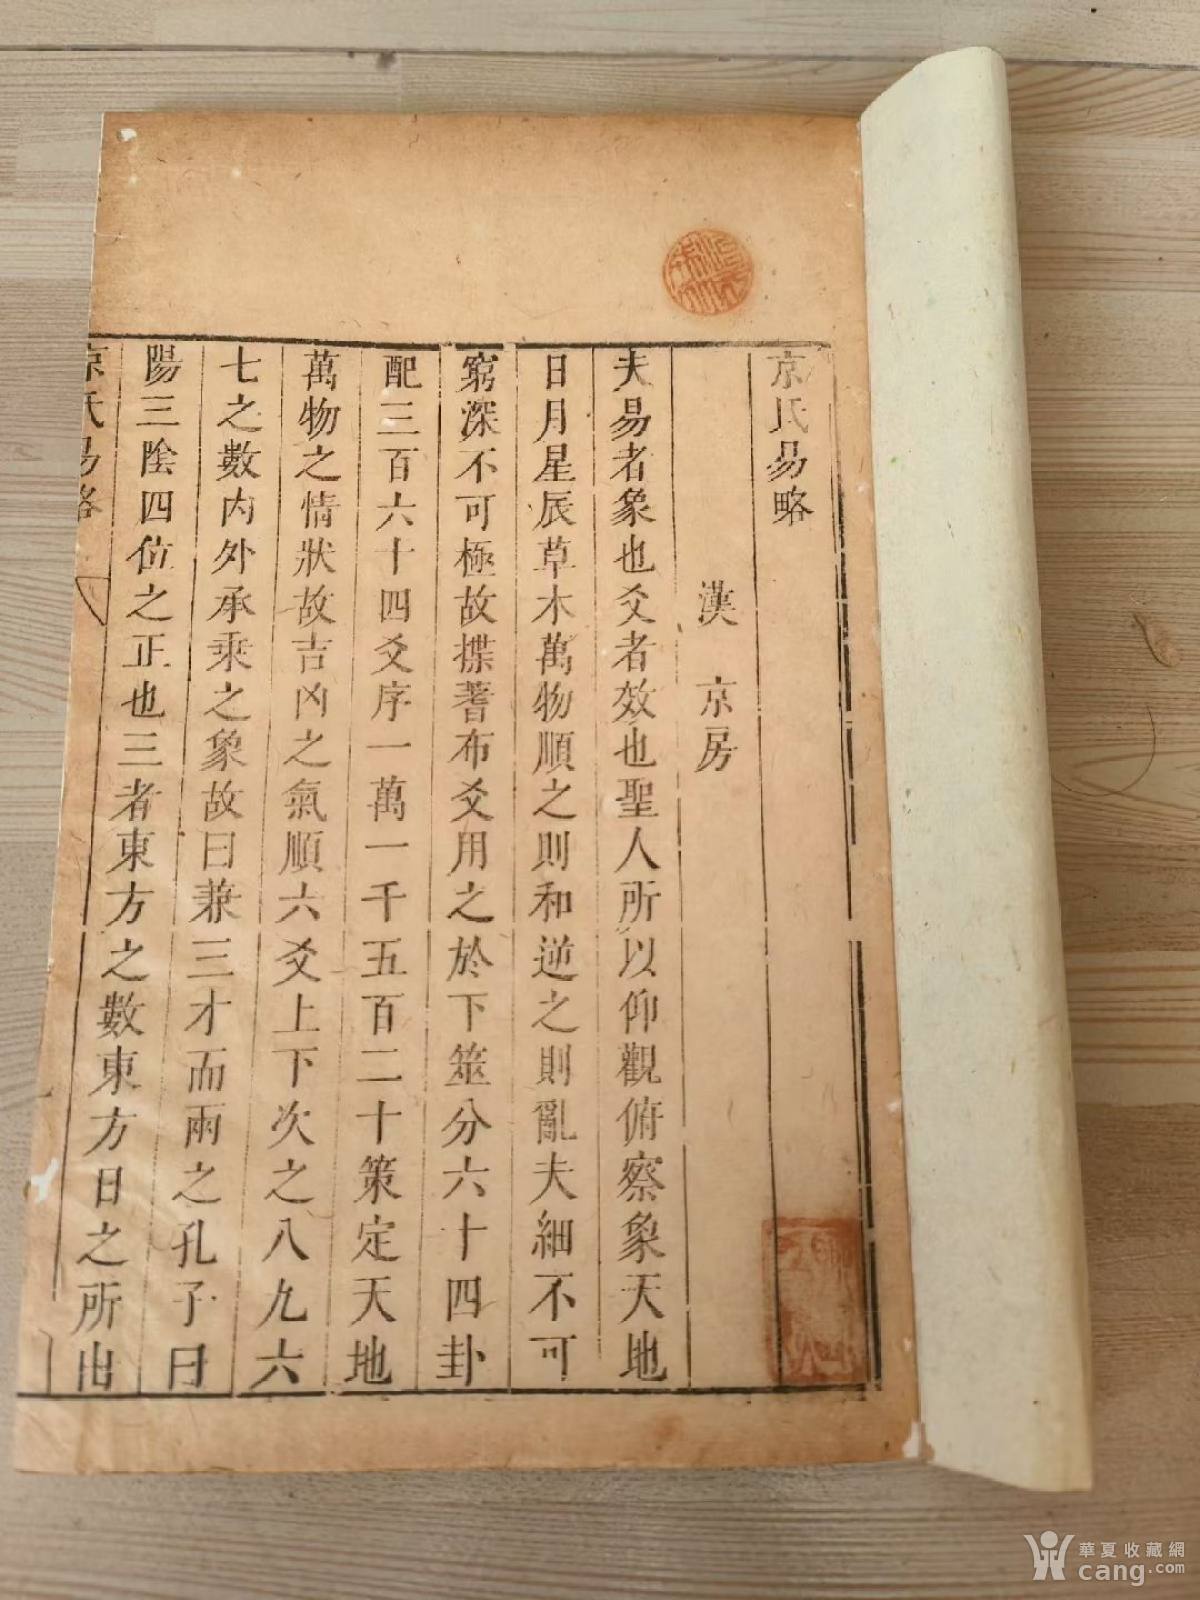 京氏易略
漢 京房
夫易者象也爻者效也聖人所以仰觀俯察象天地
日月星辰草木萬物順之則和逆之則亂夫細不可
窮深不可極故揲蓍布爻用之於下筮分六十四卦
配三百六十四爻序一萬一千五百二十策定天地
萬物之情狀故吉凶之氣順六爻上下次之八九六
七之數內外承乘之象故曰兼三才而兩之孔子曰
陽三陰四位之正也三者東方之數東方日之所出
京氏易略
華夏收藏網
cang.com